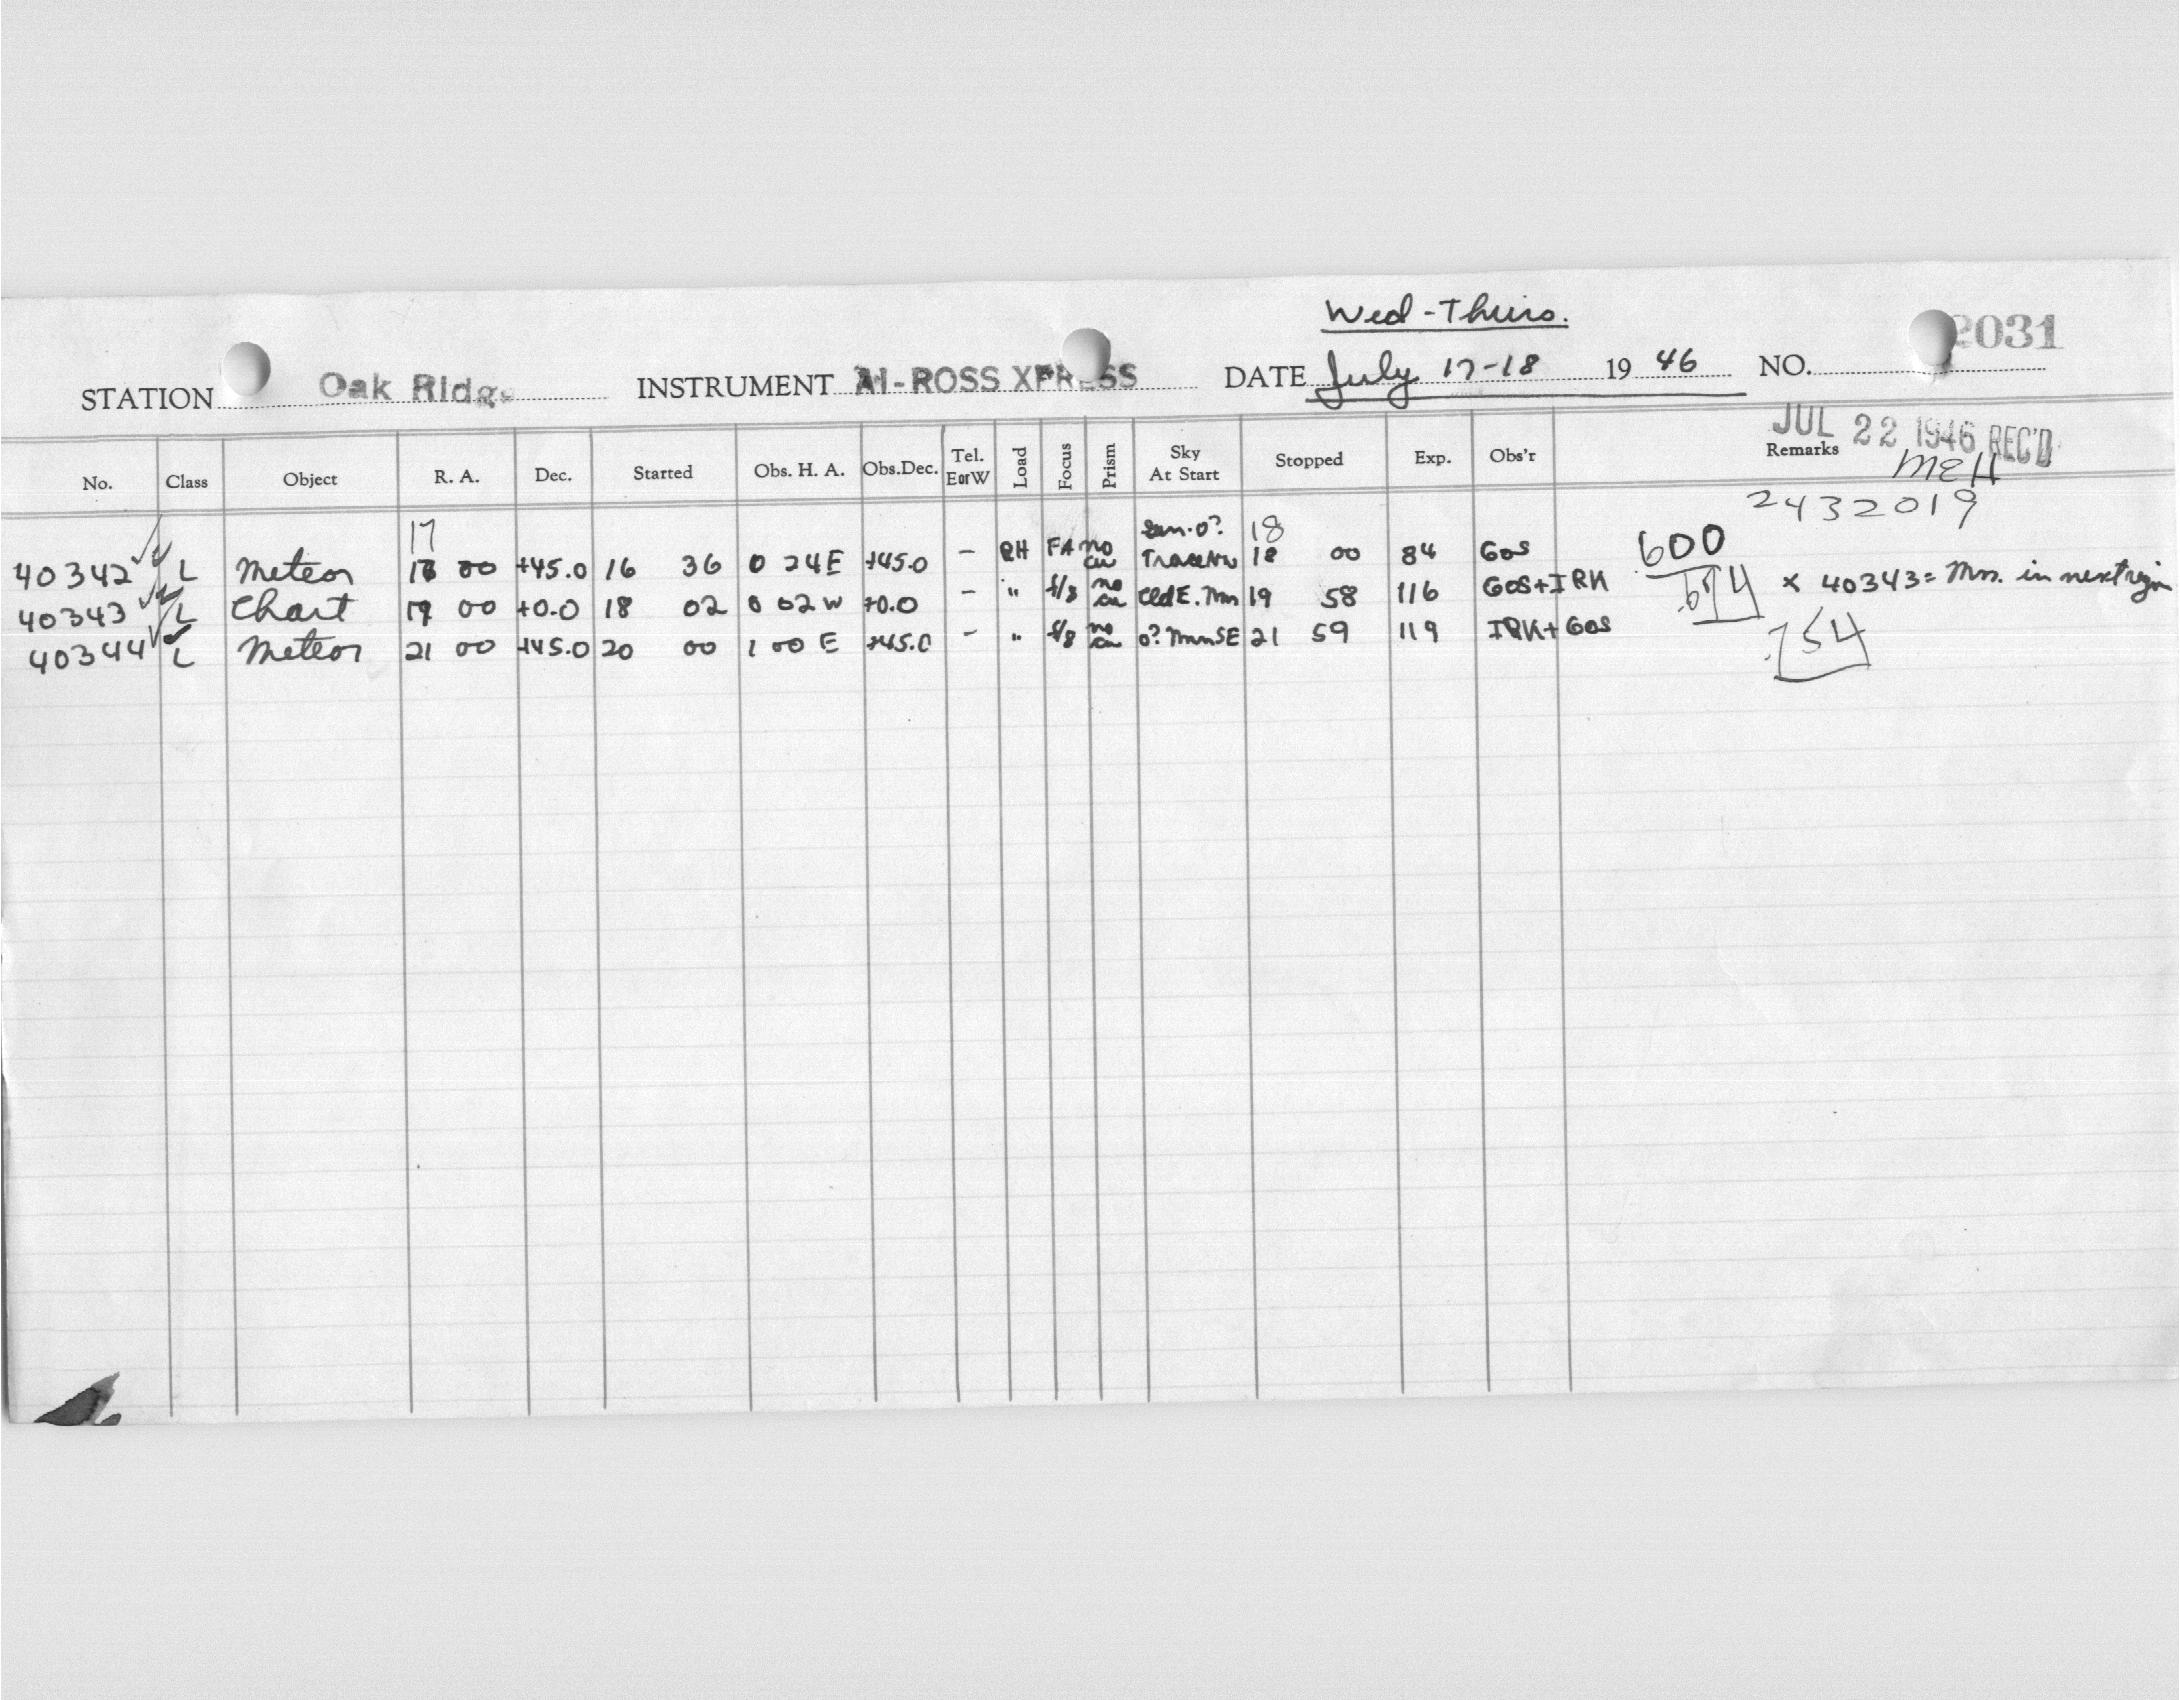 Wed-Thurs.
STATION Oak Ridge INSTRUMENT AI-ROSS XPRESS DATE July 17-18 1946 NO. 2031
JUL 22 1946 REC'D
No. Class Object R. A. Dec. Started Obs. H. A. Obs.Dec. Tel. E or W Load Focus Prism Sky At Start Stopped Exp. Obs'r Remarks
MEH
2432019
17 18
40342 L Meteor 00 +45.0 16 36 0 24E +45.0 - RH FA no 18 00 84 GoS 600
40343 L Chart 19 00 +0.0 18 02 0 02W +0.0 - " f/8 no Cld E. Mn 19 58 116 GoS+IRK x 40343 = Mn. in next region
40344 L Meteor 21 00 +45.0 20 00 1 00 E +45.0 - " f/8 no 0? Mn SE 21 59 119 IRK+GoS
.754